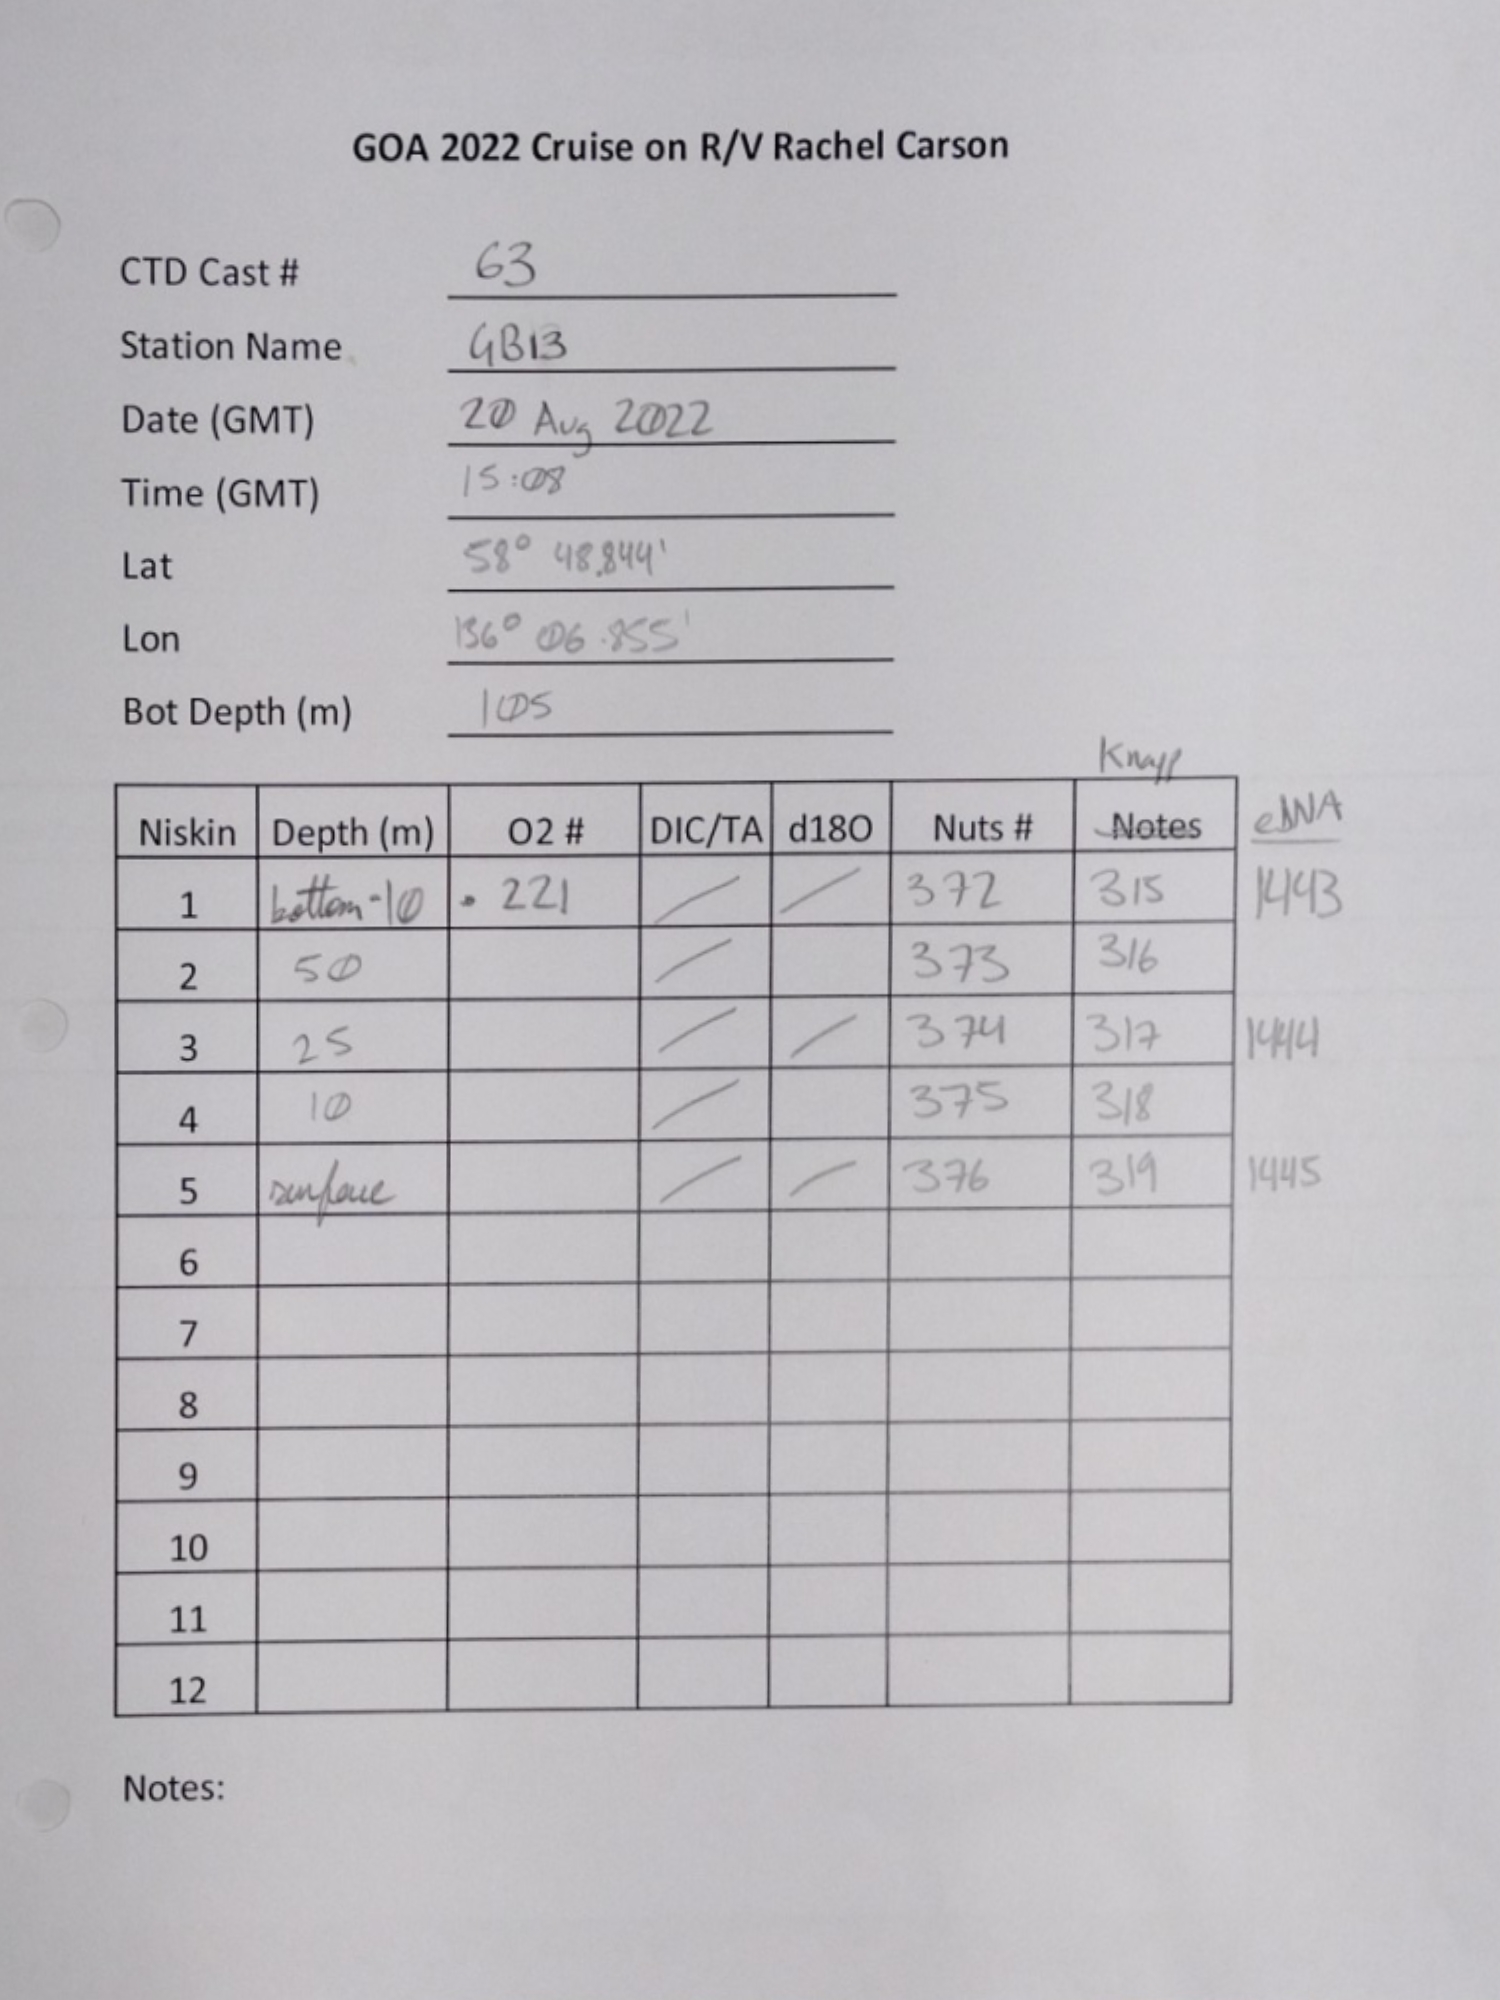 GOA 2022 Cruise on R/V Rachel Carson
CTD Cast # 63
Station Name GB13
Date (GMT) 20 Aug 2022
Time (GMT) 15:08
Lat 58° 48.844'
Lon 136° 06.855'
Bot Depth (m) 105
Knapp
Niskin Depth (m) O2 # DIC/TA d18O Nuts # Notes eDNA
1 bottom-10 . 221 / / 372 315 1443
2 50 / 373 316
3 25 / / 374 317 1444
4 10 / 375 318
5 surface / / 376 319 1445
6
7
8
9
10
11
12
Notes: